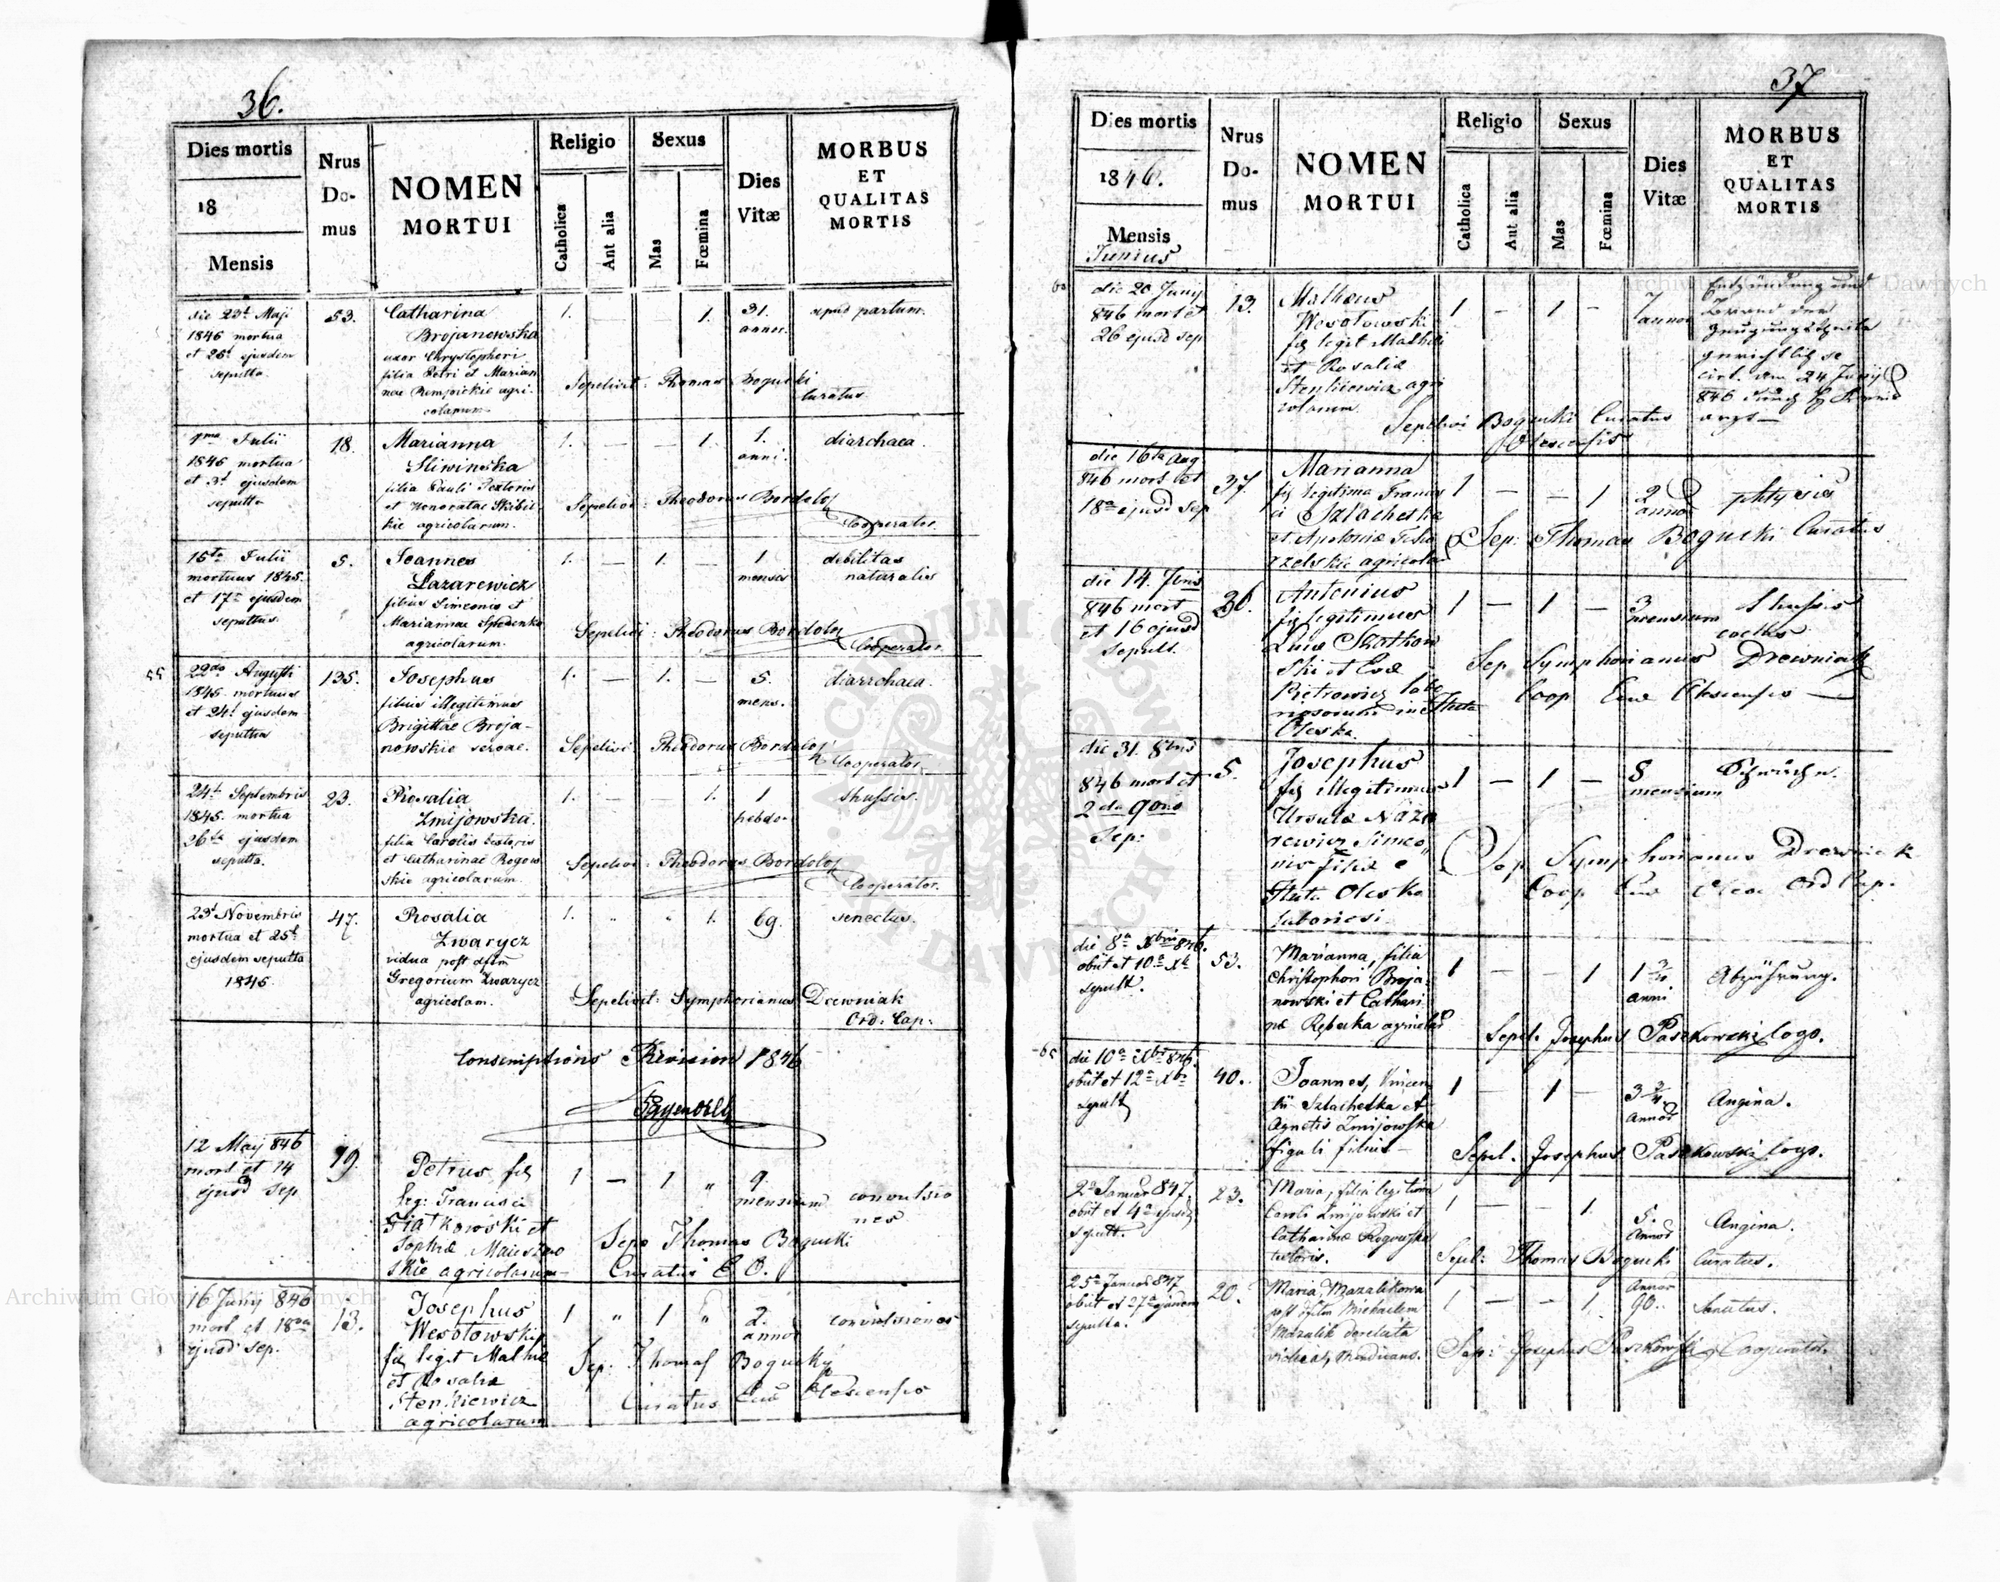 36.
Dies mortis
18
Mensis
Nrus
Do-
mus
NOMEN
MORTUI
Religio
Catholica
Aut alia
Sexus
Mas
Fœmina
Dies
Vitæ
MORBUS
ET
QUALITAS
MORTIS
die 23t Maji
1845 mortua
et 25t ejusdem
sepulta.
53.
Catharina
Brojanowska
uxor Chrystophori
filia Petri et Marian
nae agri-
colarum
1. — — 1.
31.
annor.
apud partum.
Sepelivit: Thomas Bogucki
Curatus
1ma Julii
1845 mortua
et 3t ejusdem
sepulta
18.
Marianna
Sliwinska
filia Pauli Textoris
et Honoratae Skibic
kie agricolarum.
1. — — 1.
1.
anni.
diarrhaea.
Sepelivi: Theodorus Bordoloj
Cooperator.
15ta Julii
mortuus 1845.
et 17a ejusdem
sepultus.
5.
Joannes
Lazarewicz
filius Simeonis et
Mariannae
agricolarum.
1. — 1. —
1
mensis
debilitas
naturalis
Sepelivi: Theodorus Bordoloj
Cooperator.
55
22da Augusti
1845. mortuus
et 24t ejusdem
sepultus
135.
Josephus
filius illegitimus
Brigittae Broja-
nowskie servae.
1. — 1. —
5.
mens.
diarrhaea.
Sepelivi: Theodorus Bordoloj
Cooperator
24t Septembris
1845. mortua
26ta ejusdem
sepulta.
23.
Rosalia
Zmijowska.
filia Caroli textoris
et Catharinae Rogow
skie agricolarum.
1. — 1.
1
hebdo-
thussis.
Sepelivi: Theodorus Bordoloj
Cooperator.
23t Novembris
mortua et 25t
ejusdem sepulta
1845.
47.
Rosalia
Zwarycz
vidua post dftm
Gregorium Zwarycz
agricolam.
1. " " 1.
69.
senectus.
Sepelivit: Symphorianus Drewniak
Ord. Cap:
Conscriptions Revision 1846
12 Maij 846
mort et 14
ejusd sep
79.
Petrus fil
leg: Francisci
Fiałkowski et
Sophiæ
skie agricolarum
1 — 1 "
9.
mensium
convulsio
nes
Sepe Thomas Bogucki
Curatus E. O.
16 Junij 846
mort et 18va
ejusd sep.
13.
Josephus
Wesołowski
fil legit Mathiæ
et Rosaliæ
Stenkiewicz
agricolarum
1 " 1 "
2.
annor
convulsiones
Sep: Thomas Bogucky
Curatus Olesciensis
37
Dies mortis
1846.
Mensis
Junius
Nrus
Do-
mus
NOMEN
MORTUI
Religio
Catholica
Aut alia
Sexus
Mas
Fœmina
Dies
Vitæ
MORBUS
ET
QUALITAS
MORTIS
60
die 20 Junij
846 mort et
26 ejusd sep
13.
Matheus
Wesołowski
fil legit Mathiæ
et Rosaliæ
Stenkiewicz agri
colarum
1 — 1 —
7
annor
Entzündung und
Brand der
Zeugungstheile
gerichtlich se
cirt. den 24 Junij
846
arzt —
Sepelivi Bogucki Curatus
Olescensis
die 16ta Aug
846 mort et
18a ejusd sep
37.
Marianna
fil legitima Francis
ci Szlachetka
et Apoloniæ
agricolar
1 — — 1
2
annor
phtysis
Sep: Thomas Bogucki Curatus
die 14.
846 mort
et 16 ejusd
sepult.
36.
Antonius
fil legitimus
Fiałkow
ski et Evæ
Pietrowicz labo
riosorum in Huta
Oleska.
1 — 1 —
3
mensium
thussis
Sep Symphorianus Drewniak
Coop Olesciensis —
die 31. 8bris
846 mort et
2da 9bris
Sep:
5.
Josephus
fil illegitimus
Ursulæ Naza
rewicz Simeo
nis filiæ e
Huta Oleska
laboriosi
1 — 1 —
8
mensium
Schwäche.
Sep Symphorianus Drewniak
Coop Ord Cap.
die 8a Xbris 846.
obiit et 10a Xb
sepult.
53.
Marianna, filia
Christophori Broja
nowski et Cathari
næ agricolar
1 — — 1
1 3/4
anni
Abzährung.
Sepel. Josephus Paszkowski Coop.
65
die 10a Xbr 846
obiit et 12a Xbr
sepult
40.
Joannes, Vincen
tii Szlachetka et
Agnetis Zmijowska
figuli filius
1 — 1 —
3 3/4
annor
Angina.
Sepel. Josephus Paszkowski Coop.
2a Januar 847
obiit et 4a ejusd
sepult.
23.
Maria, filia legitima
Caroli Zmijowski et
Catharinæ Rogowska
textoris.
1 — — 1
5.
annor
Angina.
Sepel: Thomas Bogucki Curatus.
25a Januar 847
obiit et 27a ejusdem
sepulta.
20.
Maria Mazalikowa
post dftm Michaelem
Mazalik derelicta
vidua, Mendicans.
1 — — 1
Annor
90..
Senectus.
Sep: Josephus Paszkowski Cooperator.
ARCHIWUM GŁÓWNE AKT DAWNYCH
Archiwum Główne Akt Dawnych
Archiwum Główne Akt Dawnych